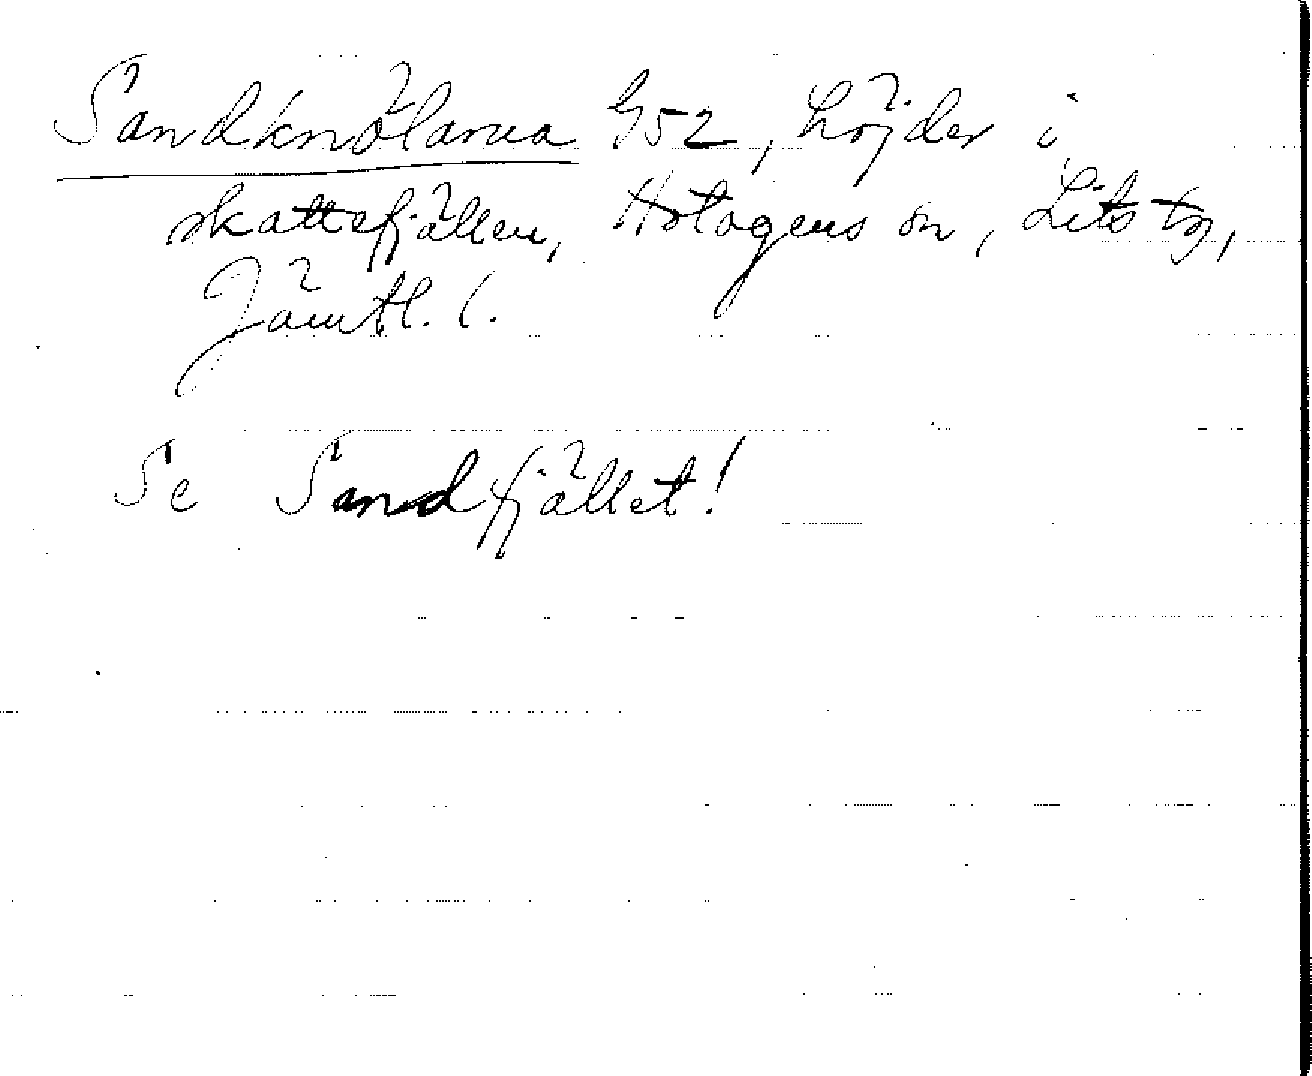 Sandknölarna G52, höjder i
skattefjällen, Hotagens sn, Lits tg,
Jämtl. l.
Se Sandfjället!